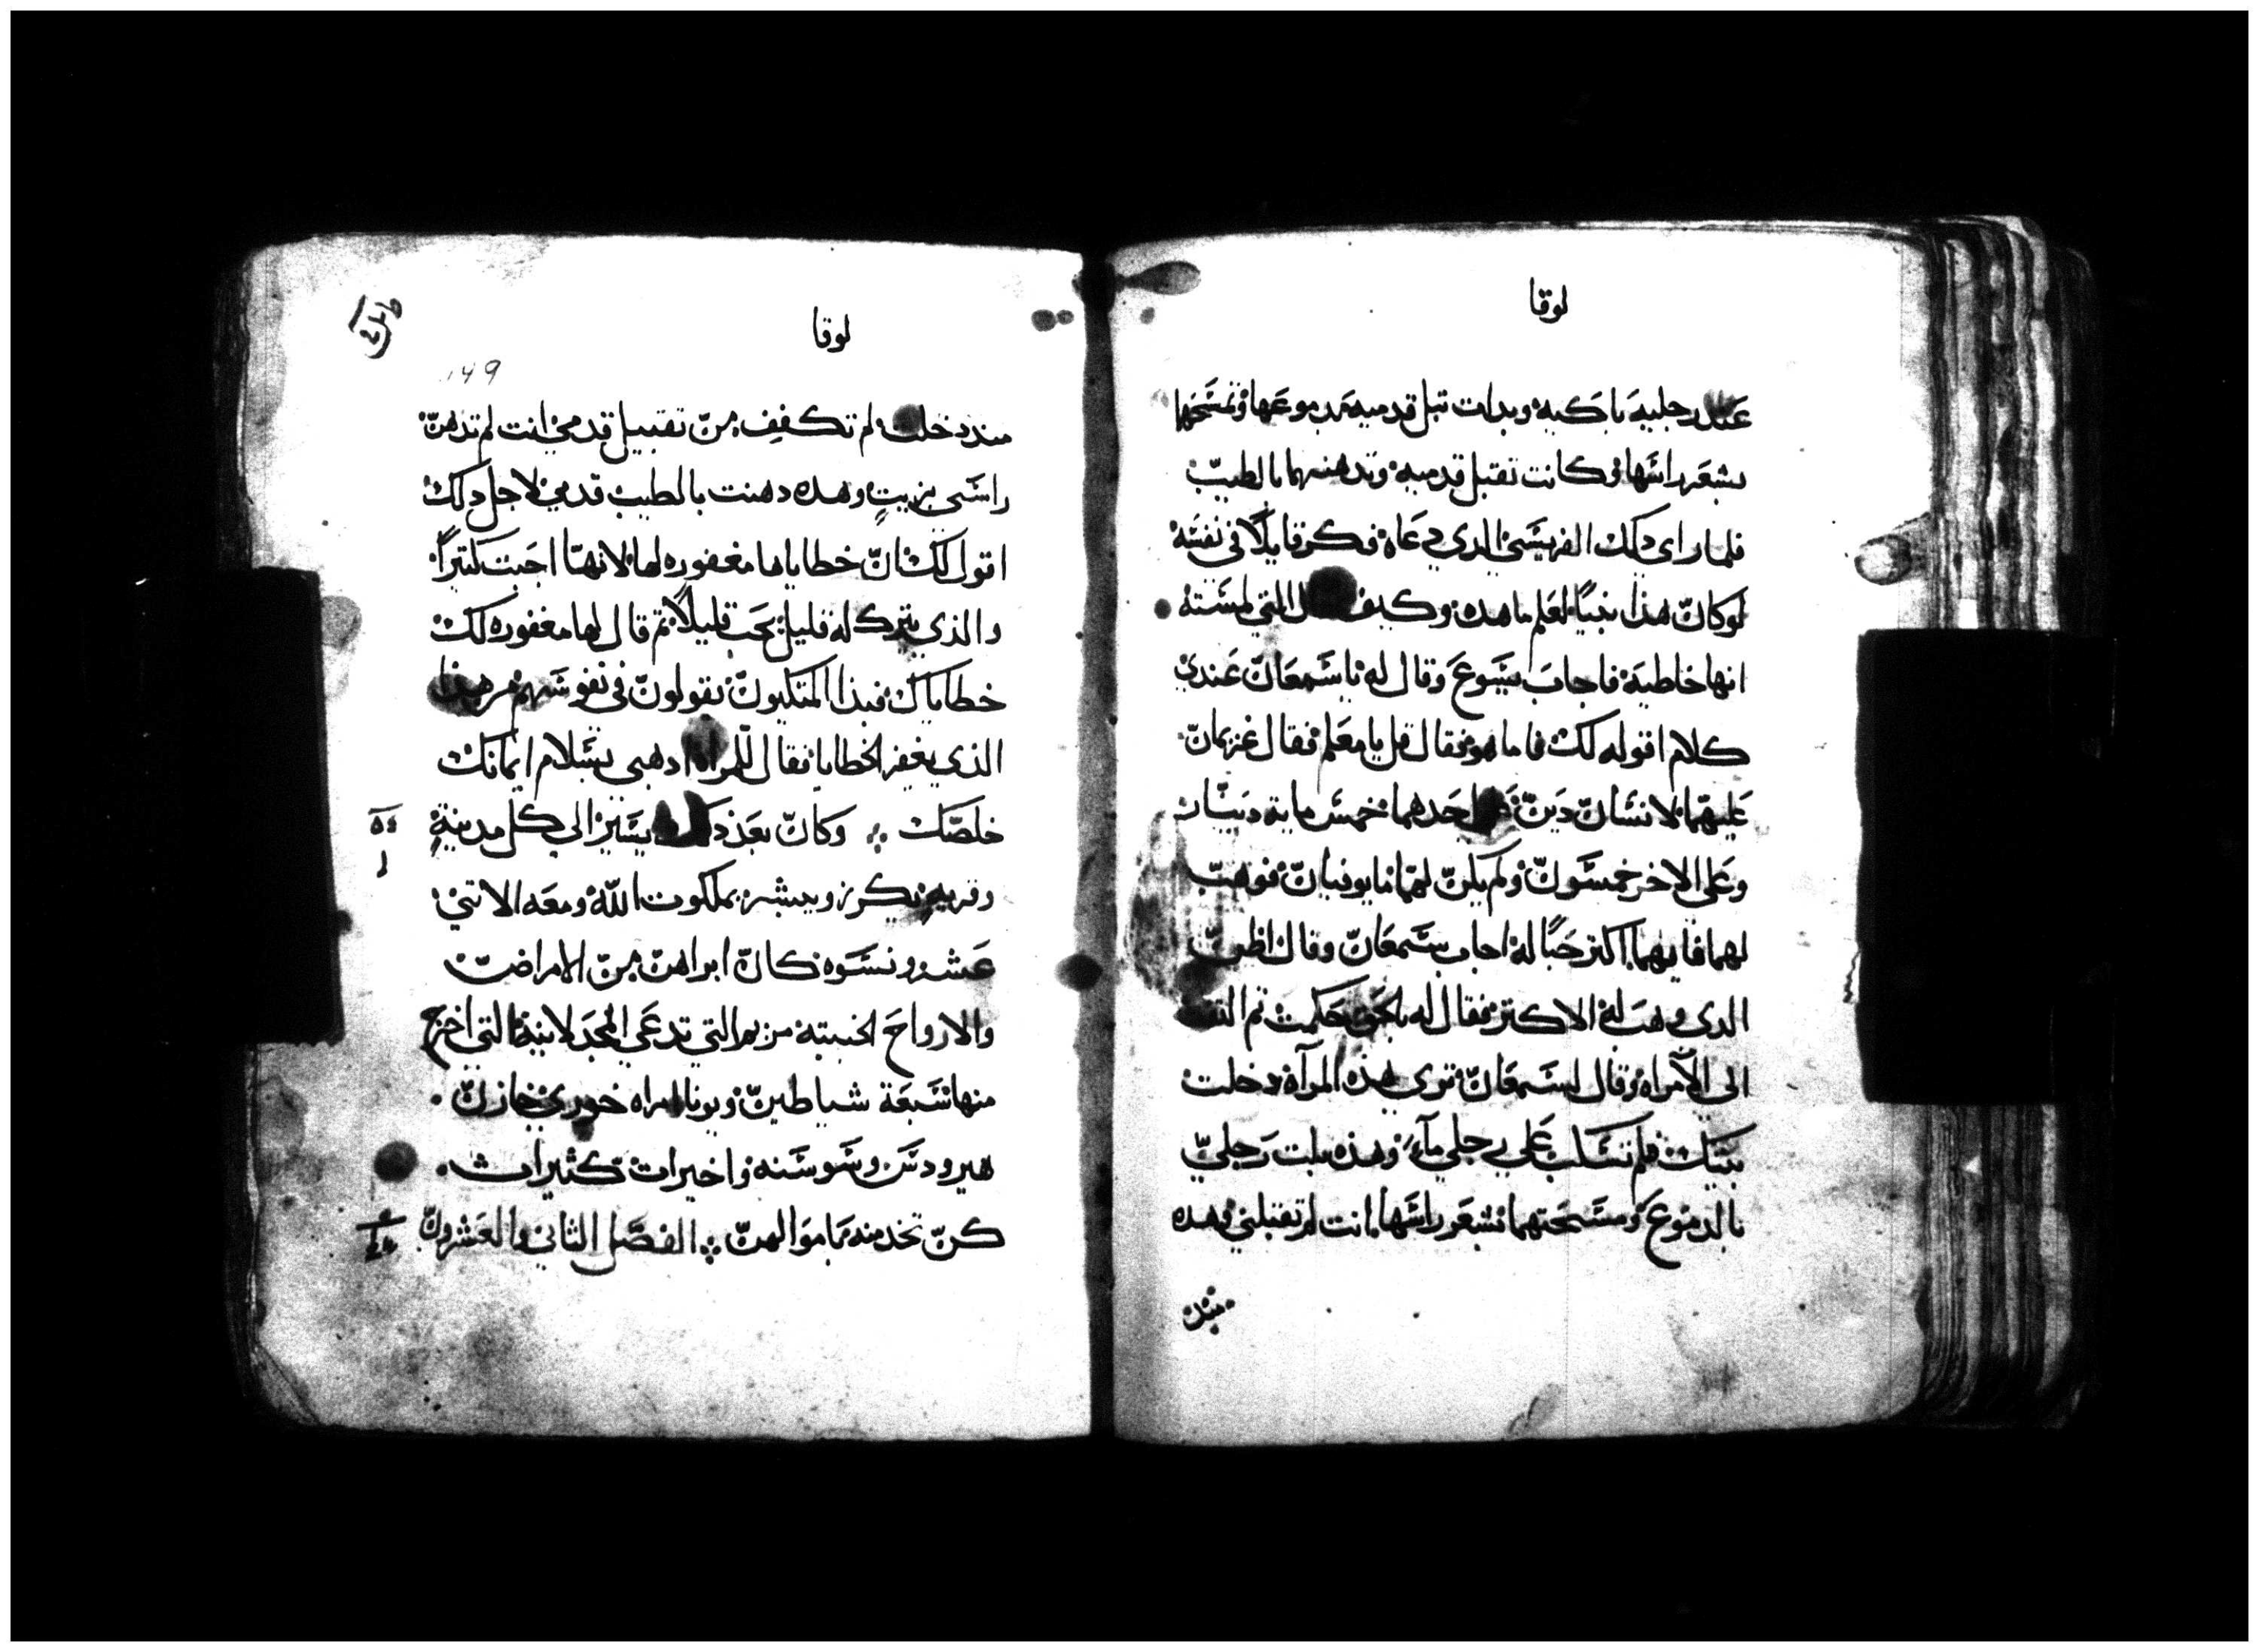 لوقا
عند رجليه باكيه وبدات تبل قدميه بدموعها وتمسحها
بشعر راسها وكانت تقبل قدميه وتدهنهما بالطيب
فلما راى دلك الفريسي الدي دعاه فكر قايلا في نفسه
لو كان هذا نبيا لعلم ما هده وكيف التي لمسته
انها خاطيه فاجاب يسوع وقال له يا سمعان عندي
كلام اقوله لك فاما هو فقال قل يا معلم فقال غريمان
عليهما لانسان دين احدهما خمس مايه دينار
وعلى الاخر خمسون ولم يكن لهما ما يوفيان فوهب
لهما فايهما اكثر حبا له اجاب سمعان وقال اظن
الدي وهب له الاكتر فقال له بالحق حكمت تم
الى الامراه وقال لسمعان ترى هذه المرآة دخلت
بيتك فلم تسكب علي رجلي مآء وهذه بلت رجلي
بالدموع ومسحتهما بشعر راسها انت لم تقبلني وهده
منذ
لوقا
149
منذ دخلت لم تكفف من تقبيل قدمي انت لم تدهن
راسي بزيت وهده دهنت بالطيب قدمي لاجل دلك
اقول لك ان خطاياها مغفوره لها لانها احبت كثيرا
والذي يترك له قليل يحب قليلا تم قال لها مغفوره لك
خطاياك فبدا المتكيون يقولون في نفوسهم من هذا
الذي يغفر الخطايا فقال للمراه ادهبي بسلام ايمانك
خلصك وكان بعد يسير الى كل مدينة
وقريه يكرز ويبشر بملكوت الله ومعه الاتني
عشر ونسوه كان ابراهن من الامراض
والارواح الخبيته مريم التي تدعي المجدلانية التي اخرج
منها سبعة شياطين ويونا امراه خوزي خازن
هيرودس وسوسنه واخيرات كثيرات
كن تخدمنه بما موالهن الفصل الثاني والعشرون